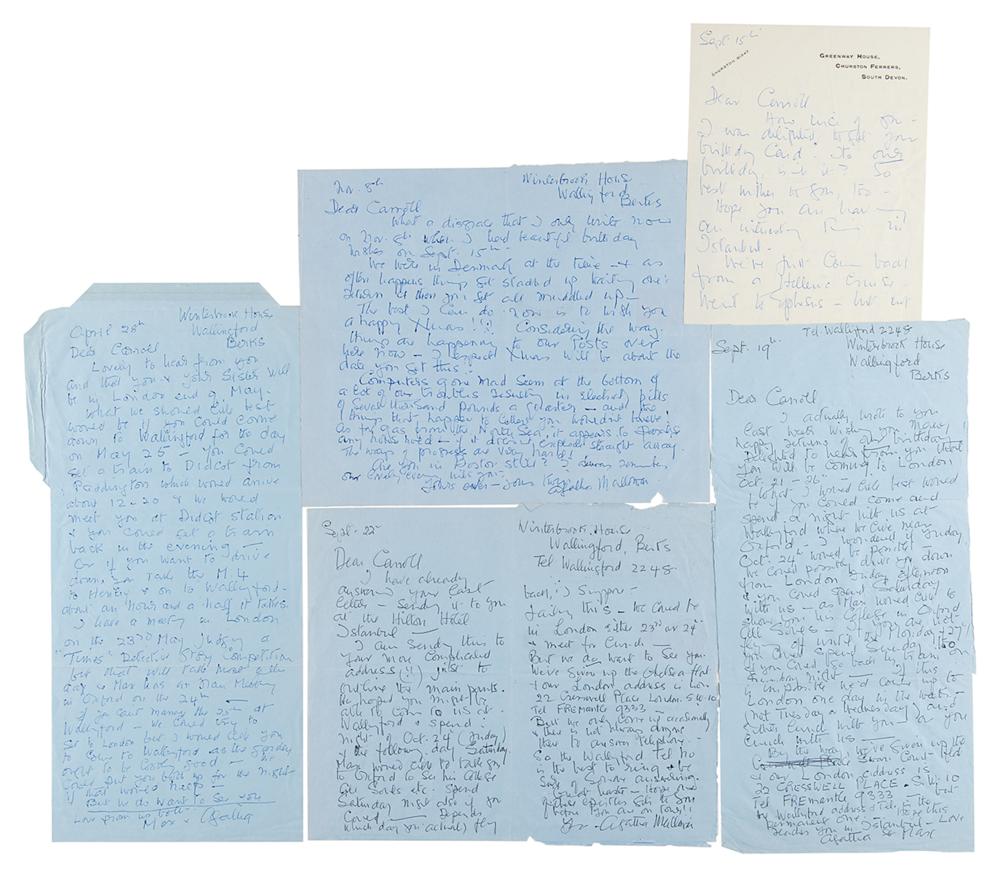 Sept. 15th
CHURSTON
GREENWAY HOUSE,
CHURSTON FERRERS,
SOUTH DEVON.
Dear Carroll
How nice of you -
I was delighted to get your
birthday Card. It's our
birthday, isn't it? So
best wishes to you, too -
Hope you are having
an interesting time in
Istanbul -
We've just come back
from a Hellenic Cruise -
Went to Ephesus - but not
Nov. 8th
Winterbrook House
Wallingford
Berks
Dear Carroll
What a disgrace that I only write now
on Nov. 8th when I had beautiful birthday
wishes on Sept. 15th -
We were in Denmark at the time - & as
often happens things get stacked up waiting one's
return & then you get all muddled up -
The best I can do now is to wish you
a happy Xmas!! Considering the way
things are happening to our Posts over
here now - I expect Xmas will be about the
date you get this!
Computers gone mad seem at the bottom of
a lot of our troubles resulting in Electric bills
of seven thousand pounds a quarter - and
things that happen to
As for gas from the North Sea, it appears to
any
The ways of progress are very hard!
Are you in Boston still?
our
Yours ever -
Agatha Mallowan
April 28th
Winterbrook House
Wallingford
Berks
Dear Carroll
Lovely to hear from you
and that you & your Sister will
be in London end of May.
What we should like best
would be if you could come
down to Wallingford for the day
on May 25 - You could
get a train to Didcot from
Paddington which would arrive
about 12-20 & we would
meet you at Didcot station
& you could get a train
back in the evening -
Or if you want to drive
down, you take the M.4
to Henley & on to Wallingford -
about an hour and a half it takes.
I have a meeting in London
on the 23rd May judging a
"Times" Detective Story Competition
but that will take most of the
day & Max has an
in Oxford on the 24th -
If you can't manage the 25th at
Wallingford - we could try to
get to London but I would like you
to come to Wallingford as the garden
ought to be looking good -
could put you both up for the night
if that would help -
But we do want to see you
Love from us both
Max & Agatha
Sept. 22nd
Winterbrook House
Wallingford, Berks
Tel Wallingford 2248
Dear Carroll
I have already
answered your last
letter - sending it to you
at the Hilton Hotel
Istanbul -
I am sending this to
your more complicated
address (!) just to
outline the main points.
We hope you might be
able to come to us at
Wallingford & spend
night of Oct. 24th (Friday)
& the following day Saturday
Max would like to take you
to Oxford to see his College
All Souls etc. spend
Saturday night also if you
could - Depends
which day you actually fly
back, I suppose -
Failing this - we could be
in London either 23rd or 24th
& meet for Lunch -
But we do want to see you.
We've given up the Chelsea flat
& our London address is now
22 Cresswell Place London. S.W.10
Tel FREmantle 9333
But we only come up occasionally
& there is not always anyone
there to answer telephone -
So the Wallingford Tel no
is the best to ring & be
sure of someone answering.
Great haste - Hope one or
other epistles gets to you
before you are on tour!
Yrs. Agatha Mallowan
Tel. Wallingford 2248
Sept. 19th
Winterbrook House
Wallingford
Berks
Dear Carroll
I actually wrote to you
last week wishing you Many
happy returns of our birthday!
Delighted to hear from you that
you will be coming to London
Oct. 21-26th -
What I would like best would
be if you could come and
spend a night with us at
Wallingford where we live near
Oxford - I wondered if Friday
Oct. 24th would be possible -
We could possibly drive you down
from London Friday afternoon
& you could spend Saturday
with us - as Max would like to
show you his College in Oxford
All Souls - or if you are not
flying off until the Monday (27th)
you could spend Sunday too
if you could go back by train on
Sunday night - If this
is impossible we'd come up to
London one day in the week -
(not Tuesday or Wednesday) and
either Lunch with you - or you
Lunch with us -
By the way, we've given up the
Swan Court flat
& our London address is
22 CRESSWELL PLACE. S.W.10
Tel. FREMANTLE 9333
but Wallingford address & Tel. is the
permanent one - Hope this
reaches you in Istanbul - Love
Agatha & Max